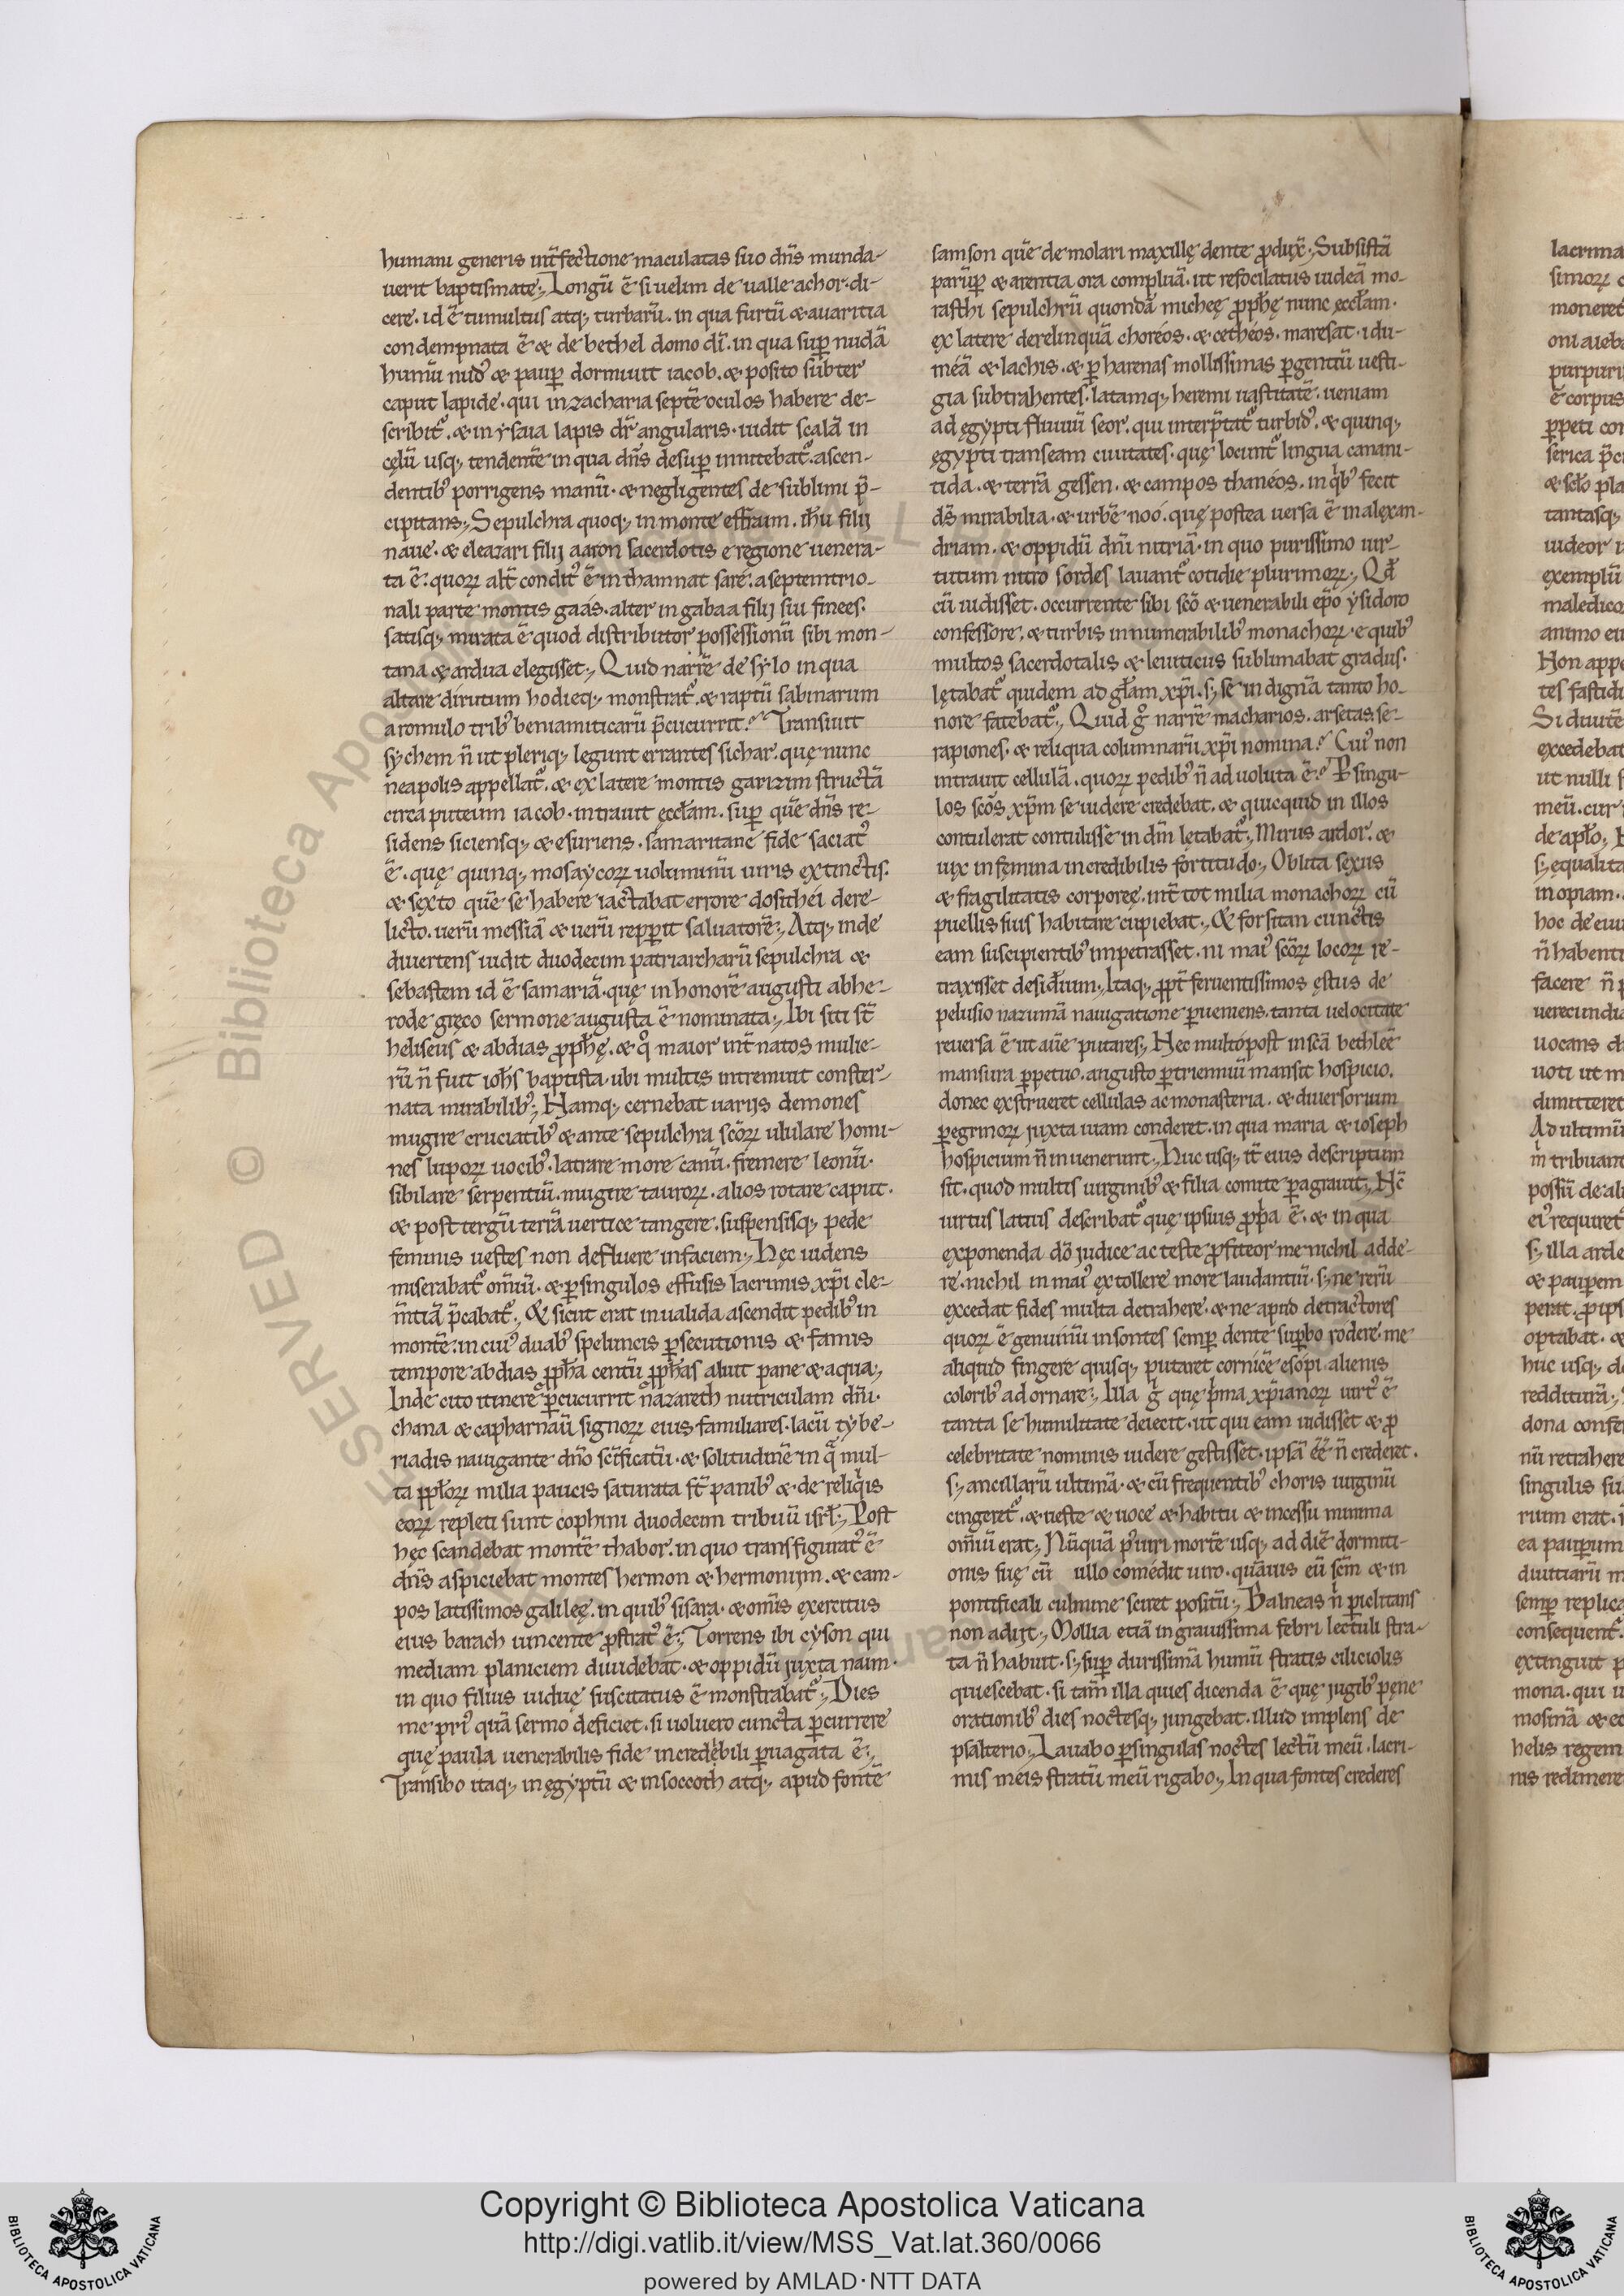 humani generis int̄fectione maculatas suo dn̄s munda-
uerit baptismate;, Longū ē si uelim de ualle achor. di-
cere. id ē tumultus atq; turbarū. in qua furtū & auaritia
condempnata ē & de bethel domo dī. in qua sup̱ nudā
humū nud᾽ & paup̱ dormiuit iacob. & posito subter
caput lapide. qui in zacharia septē oculos habere de-
scribit᾽. & in ẏsaia lapis dr̄ angularis. uidit scalā in
cęlū usq; tendentē in qua dn̄s desup̱ innitebat᾽. ascen-
dentib᾽ porrigens manū. & negligentes de sublimi p̄-
cipitans;, Sepulchra quoq; in monte effraim. ih̄u filij
naue. & eleazari filij aaron sacerdotis e regione uenera-
ta ē. quoꝝ alt̄ condit᾽ ē in thamnat saré. a septemtrio-
nali parte montis gaás. alter in gabaa filij sui finees.
satisq; mirata ē quod distributor possessionū sibi mon-
tana & ardua elegisset;, Quid narrē de sẏlo in qua
altare dirutum hodieq; monstrat᾽. & raptū sabinarum
a romulo trib᾽ beniamiticarū p̄cucurrit? Transiuit
sẏchem n̄ ut pleriq; legunt errantes sichar. quę nunc
neapolis appellat᾽. & ex latere montis garizim structā
circa puteum iacob. intrauit ęccl̄am. sup̱ quē dn̄s re-
sidens siciensq; & esuriens. samaritanę fide saciat᾽
ē. quę quinq; mosaẏcoꝝ uoluminū uiris extinctis.
& sexto quē se habere iactabat errore dosithei dere-
licto. uerū messiā & uerū repp̱it saluatorē;, Atq; inde
diuertens uidit duodecim patriarcharū sepulchra &
sebastem id ē samariā. quę in honorē augusti ab he-
rode gręco sermone augusta ē nominata;, Ibi siti st̄
heliseus & abdias ꝓph̄ę. & q᾽ maior int̄ natos mulie-
rū n̄ fuit ioh̄s baptista. ubi multis intremuit conster-
nata mirabilib᾽;, Namq; cernebat uarijs demones
mugire cruciatib᾽ & ante sepulchra sc̄oꝝ ululare homi-
nes lupoꝝ uocib᾽. latrare more canū. fremere leonū.
sibilare serpentiū. mugire tauroꝝ. alios rotare caput.
& post tergū terrā uertice tangere. suspensisq; pede
feminis uestes non defluere in faciem;, Hęc uidens
miserabat᾽ om̄iū. & p̱ singulos effusis lacrimis xp̄i cle-
m̄tiā p̄cabat᾽;, & sicut erat inualida ascendit pedib᾽ in
montē. in cui᾽ duab᾽ speluncis p̱secutionis & famis
tempore abdias ꝓph̄a centū ꝓph̄as aluit pane & aqua;,
Inde cito itinere p̱cucurrit nazareth nutriculam dn̄i.
chana & capharnaū signoꝝ eius familiares. lacū tẏbe-
riadis nauigante dn̄o sc̄ificatū. & solitudinē in q̄ mul-
ta pp̄loꝝ milia paucis saturata st̄ panib᾽ & de reliq̇is
eoꝝ repleti sunt cophini duodecim tribuū isrl̄;, Post
hęc scandebat montē thabor. in quo transfigurat᾽ ē
dn̄s aspiciebat montes hermon & hermonijm. & cam-
pos latissimos galileę. in quib᾽ sisara. & om̄is exercitus
eius barach uincente ꝓstrat᾽ ē;, Torrens ibi cẏson qui
mediam planiciem diuidebat. & oppidū juxta naim.
in quo filius uiduę suscitatus ē monstrabat᾽;, Dies
me pri᾽ quā sermo deficiet. si uoluero cuncta p̱currere
quę paula uenerabilis fide incredebili p̱uagata ē;,
Transibo itaq; in ęgẏptū & in soccoth atq; apud fontē
samson quē de molari maxillę dente ꝓduxt̄;, Subsistā
parūp̱ & arentia ora compluā. ut refocilatus uideā mo-
rasthi sepulchrū quondā micheę ꝓph̄ę nunc ęccl̄am.
ex latere derelinquā choréos. & cethéos. maresat. idu-
méā & lachis. & p̱ harenas mollissimas p̱gentiū uesti-
gia subtrahentes. latamq; heremi uastitatē. ueniam
ad ęgẏpti fluuiū seor. qui interp̄tat᾽ turbid᾽. & quinq;
ęgẏpti transeam ciuitates. quę locunt᾽ lingua canani-
tida. & terrā gessen. & campos thanéos. in q̇b᾽ fecit
ds̄ mirabilia. & urbē noó. quę postea uersa ē in alexan-
driam. & oppidū dn̄i nitriā. in quo purissimo uir-
tutum nitro sordes lauant᾽ cotidie plurimoꝝ;, Qđ
cū uidisset. occurrente sibi sc̄o & uenerabili ep̄o ẏsidoro
confessore. & turbis innumerabilib᾽ monachoꝝ. e quib᾽
multos sacerdotalis & leuiticus sublimabat gradus.
lętabat᾽ quidem ad gl̄am xp̄i. s; se indignā tanto ho-
nore fatebat᾽;, Quid g᾽ narrē macharios. arsetas. se-
rapiones. & reliqua columnarū xp̄i nomina? Cui᾽ non
intrauit cellulā. quoꝝ pedib᾽ n̄ aduoluta ē? P̱ singu-
los sc̄os xp̄m se uidere credebat. & quicquid in illos
contulerat contulisse in dm̄ lętabat᾽;, Mirus ardor. &
uix in femina incredibilis fortitudo;, Oblita sexus
& fragilitatis corporeę. int̄ tot milia monachoꝝ cū
puellis suis habitare cupiebat;, & forsitan cunctis
eam suscipientib᾽ impetrasset. ni mai᾽ sc̄oꝝ locoꝝ re-
traxisset desid̄ium;, Itaq; ꝓpt̄ feruentissimos ęstus de
pelusio nazumā nauigatione p̱ueniens. tanta uelocitate
reuersa ē ut auē putares;, Nec multó post in sc̄a bethleē
mansura p̱petuo. angusto p̱ trienniū mansit hospicio.
donec exstrueret cellulas ac monasteria. & diuersorium
p̱egrinoꝝ juxta uiam conderet. in qua maria & ioseph
hospicium n̄ inuenerunt;, Huc usq; it̄ eius descriptum
sit. quod multis uirginib᾽ & filia comite p̱agrauit;, Nc̄
uirtus latius describat᾽ quę ipsius ꝓp̱a ē. & in qua
exponenda dō judice ac teste ꝓfiteor me nichil adde-
re. nichil in mai᾽ extollere more laudantiū. s; ne rerū
excedat fides multa detrahere. & ne apud detractores
quoꝝ ē genuinū insontes semp̱ dente sup̱bo rodere. me
aliquid fingere quisq; putaret cornicē esópi alienis
colorib᾽ adornare;, Illa g᾽ quę ṗma xp̄ianoꝝ uirt᾽ ē
tanta se humilitate deiecit. ut qui eam uidisset & ꝓ
celebritate nominis uidere gestisset. ipsā ēē n̄ crederet.
s; ancillarū ultimā. & cū frequentib᾽ choris uirginū
cingeret᾽. & ueste & uoce & habitu & incessu minima
om̄iū erat;, Nūquā p᾽ uiri mortē usq; ad diē dormiti-
onis suę cū ullo comédit uiro. quāuis eū sc̄m & in
pontificali culmine sciret positū;, Balneas n̄ p̱iclitans
non adijt;, Mollia etiā in grauissima febri lectuli stra-
ta n̄ habuit. s; sup̱ durissimā humū stratis ciliciolis
quiescebat. si tam̄ illa quies dicenda ē quę jugib᾽ pęne
orationib᾽ dies noctesq; jungebat. illud implens de
psalterio;, Lauabo p̱ singulas noctes lectū meū. lacri-
mis meis stratū meū rigabo;, In qua fontes crederes
lacrima
simoꝝ
moneret
oni aieba
purpuri
ē corpus
p̱peti con
serica
& sc̄lo pla
tantasq;
uideor
exemplū
maledico
animo
Non appe
tes fastidi
Si diuitē
excedebat
ut nulli
meū. cur
de apl̄o;,
s; equalita
inopiam.
hoc de euu
n̄ habenti
facere n̄
uerecundia
uocans
uoti ut m
dimitteret
Ad ultimū
tribuant
possū de ali
ei᾽ requiret᾽
s; illa arde
& paup̱em
perat. ꝓ ips
optabat. &
huc usq; de
redditurā;,
dona confe
nū retrahere
singulis su
rium erat.
ea paup̱um
diuitiarū m
semp̱ replica
consequent᾽
extinguit
mona. qui
mosinā & ec
helis regem
nis redimere
© Biblioteca Apostolica Vaticana
RESERVED
Copyright © Biblioteca Apostolica Vaticana
http://digi.vatlib.it/view/MSS_Vat.lat.360/0066
powered by AMLAD·NTT DATA
BIBLIOTECA APOSTOLICA VATICANA
BIBLIOTECA APOSTOLICA VATICANA